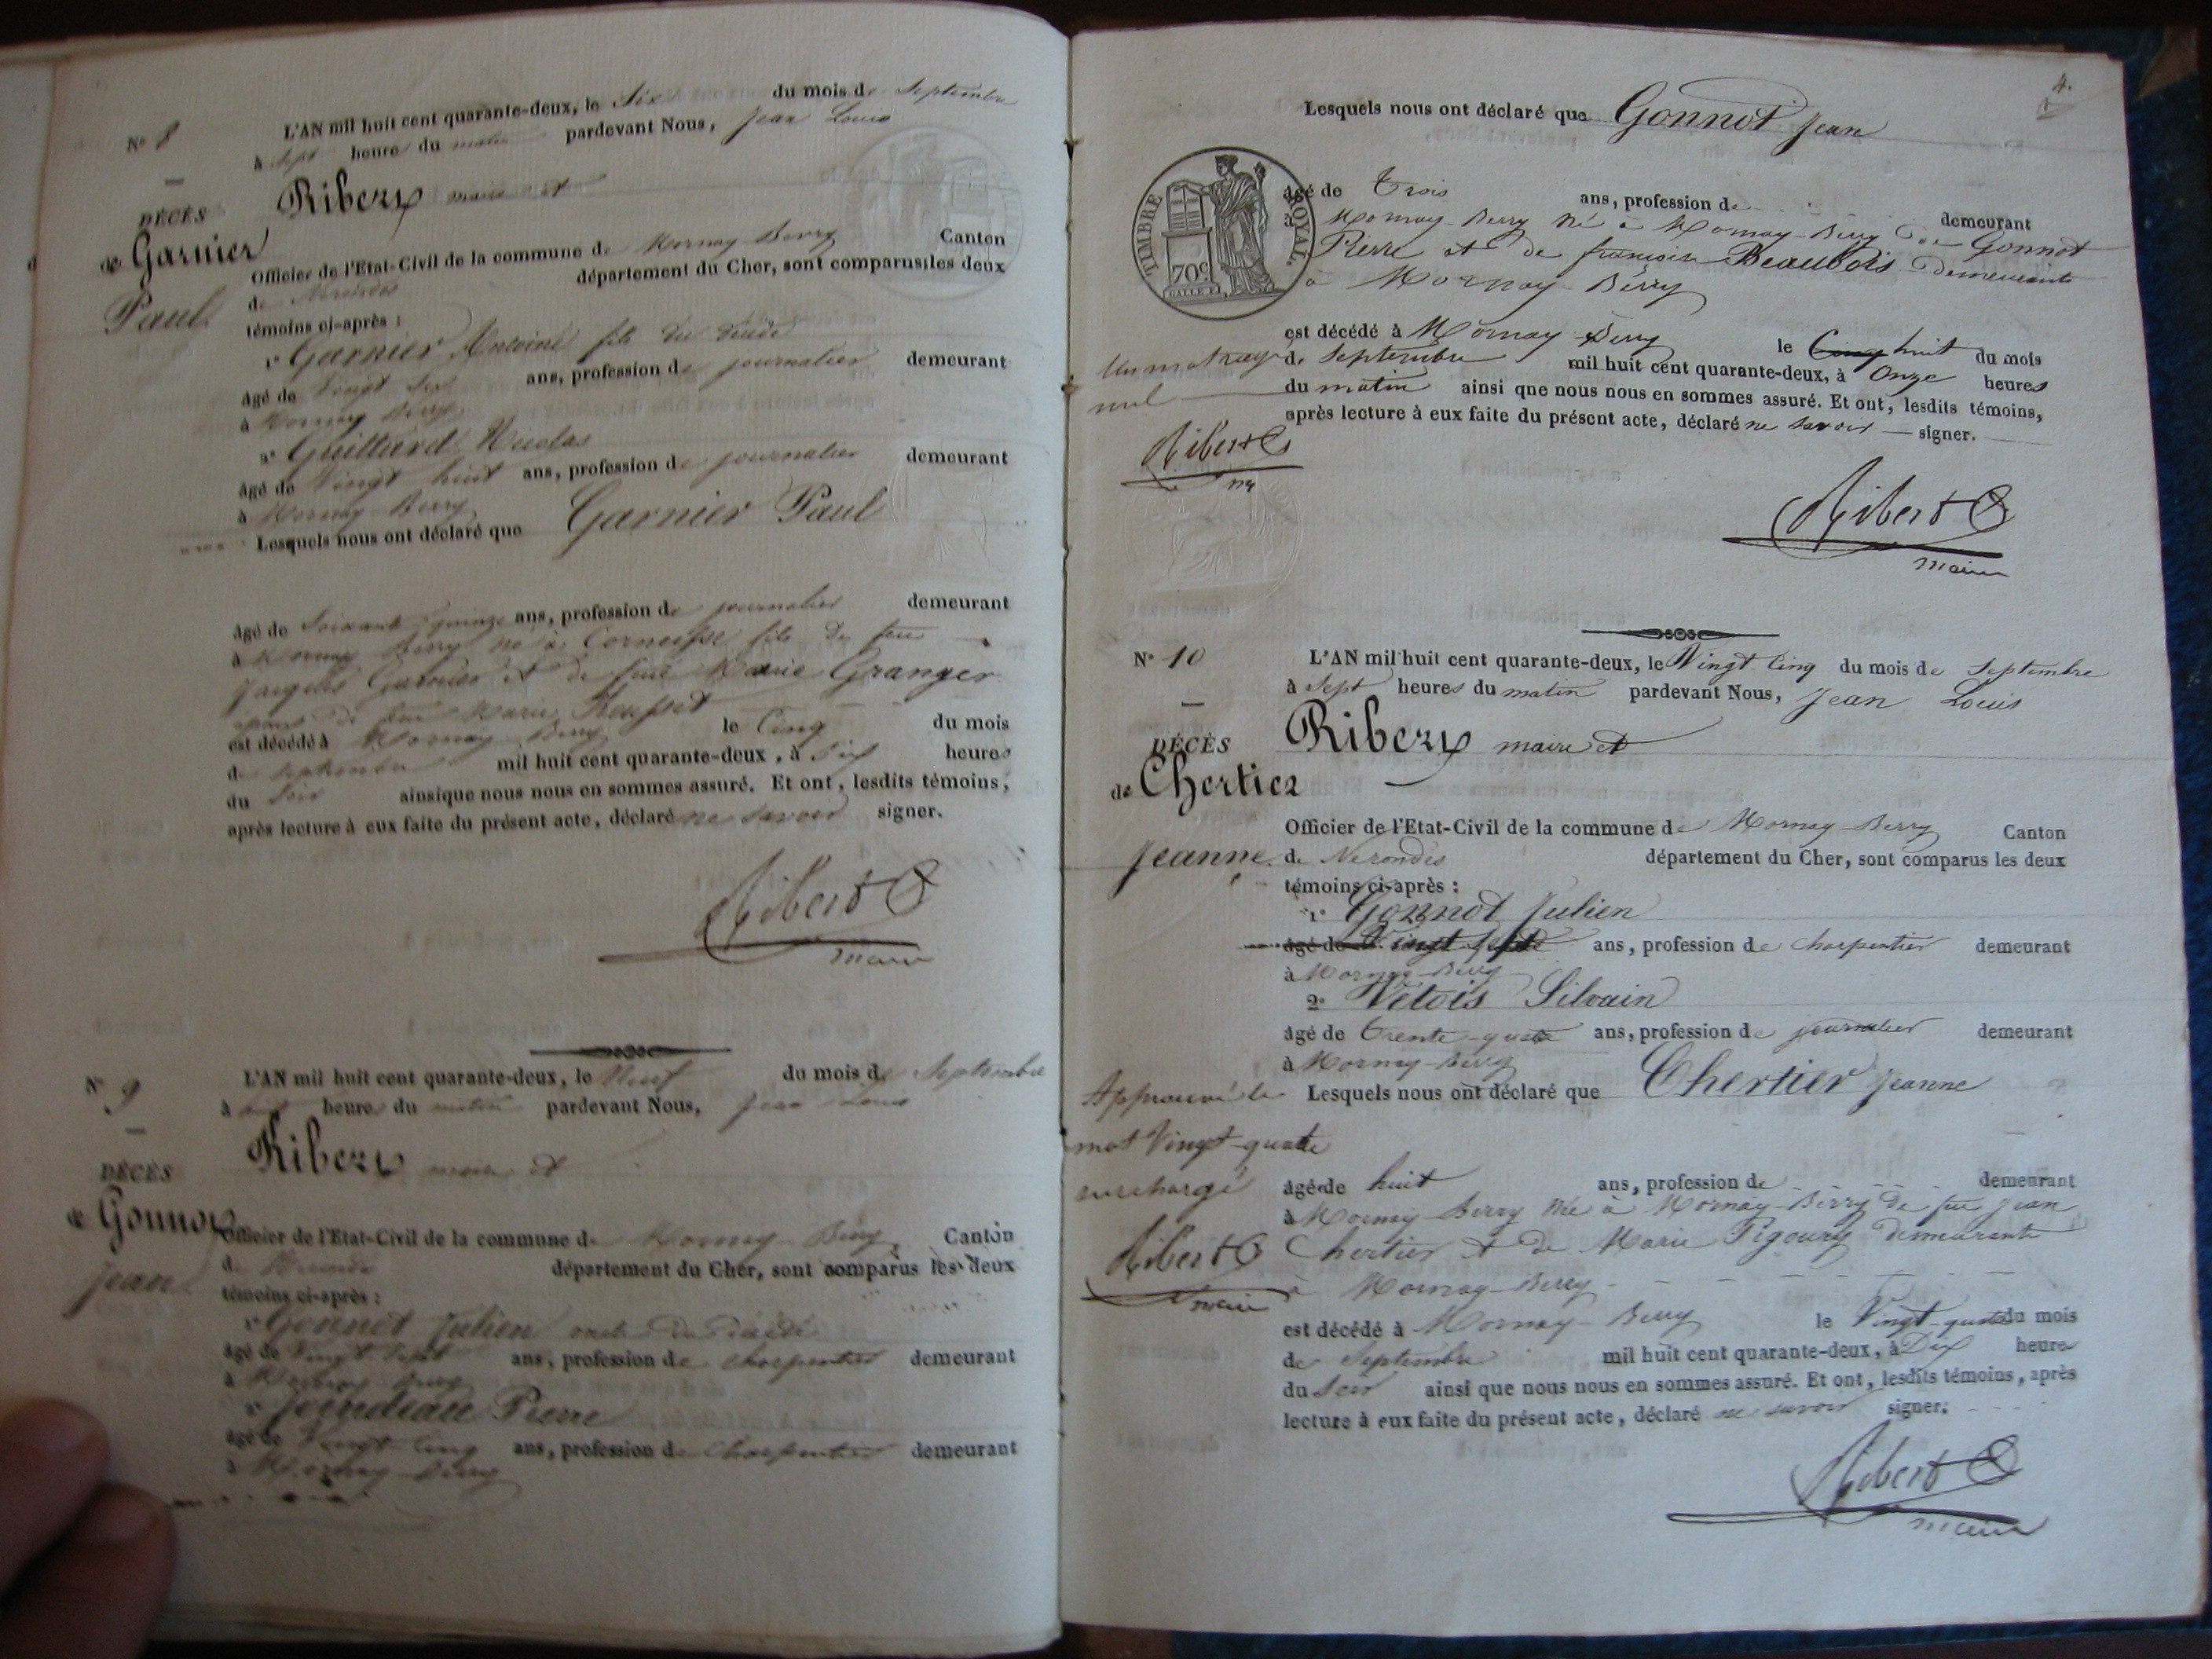 N° 8
L'AN mil huit cent quarante-deux, le Six du mois de Septembre
à Sept heure du matin pardevant Nous, Jean Louis
DÉCÈS
Ribert maire et
de Garnier
Paul
Officier de l'Etat-Civil de la commune de Mornay Berry Canton
de Nerondes département du Cher, sont comparus les deux
témoins ci-après :
1° Garnier Antoine fils du
âgé de Vingt Six ans, profession de journalier demeurant
à Mornay Berry
2° Guillard Nicolas
âgé de Vingt huit ans, profession de journalier demeurant
à Mornay-Berry
Lesquels nous ont déclaré que Garnier Paul
âgé de Soixante quinze ans, profession de journalier demeurant
à Mornay Berry né à Cornusse fils de feu
Jacques Garnier et de feue Marie Granger
époux de feue Marie
est décédé à Mornay Berry le Cinq du mois
de Septembre mil huit cent quarante-deux, à heures
du Soir ainsi que nous nous en sommes assuré. Et ont, lesdits témoins,
après lecture à eux faite du présent acte, déclaré ne savoir signer.
Ribert
maire
N° 9
L'AN mil huit cent quarante-deux, le Neuf du mois d. Septembre
à huit heures du matin pardevant Nous, Jean Louis
DÉCÈS
Ribert maire et
de Gonnot
Jean
Officier de l'Etat-Civil de la commune d. Mornay-Berry Canton
de département du Cher, sont comparus les deux
témoins ci-après :
1° Gonnot Julien oncle du
âgé de Vingt-Sept ans, profession de charpentier demeurant
à Mornay Berry
Pierre
âgé de Vingt-Cinq ans, profession de Charpentier demeurant
à Mornay-Berry
4.
Lesquels nous ont déclaré que Gonnot Jean
TIMBRE ROYAL.
70c
âgé de trois ans, profession de demeurant
à Mornay-Berry né à Mornay-Berry de Gonnot
Pierre et de françoise Beaubois demeurants
à Mornay-Berry
est décédé à Mornay-Berry le Cinq huit du mois
de Septembre mil huit cent quarante-deux, à Onze heures
du matin ainsi que nous nous en sommes assuré. Et ont, lesdits témoins,
après lecture à eux faite du présent acte, déclaré ne savoir signer.
Un mot rayé
nul
Ribert
Ribert
maire
N° 10
L'AN mil huit cent quarante-deux, le Vingt Cinq du mois de Septembre
à Sept heures du matin pardevant Nous, Jean Louis
DÉCÈS
Ribert maire et
de Chertier
Jeanne
Officier de l'Etat-Civil de la commune de Mornay-Berry Canton
de Nerondes département du Cher, sont comparus les deux
témoins ci-après :
1° Gonnot Julien
âgé de Vingt Sept ans, profession de charpentier demeurant
à Mornay-Berry
2° Vetois Silvain
âgé de trente-quatre ans, profession de journalier demeurant
à Mornay-Berry
Lesquels nous ont déclaré que Chertier Jeanne
Approuvé le
mot Vingt-quatre
surchargé
Ribert
maire
âgé de huit ans, profession de demeurant
à Mornay-Berry Née à Mornay-Berry de feu Jean
Chertier et de Marie Pigoury demeurante
à Mornay-Berry
est décédé à Mornay-Berry le Vingt-quatre du mois
de Septembre mil huit cent quarante-deux, à Dix heures
du Soir ainsi que nous nous en sommes assuré. Et ont, lesdits témoins, après
lecture à eux faite du présent acte, déclaré ne savoir signer.
Ribert
maire